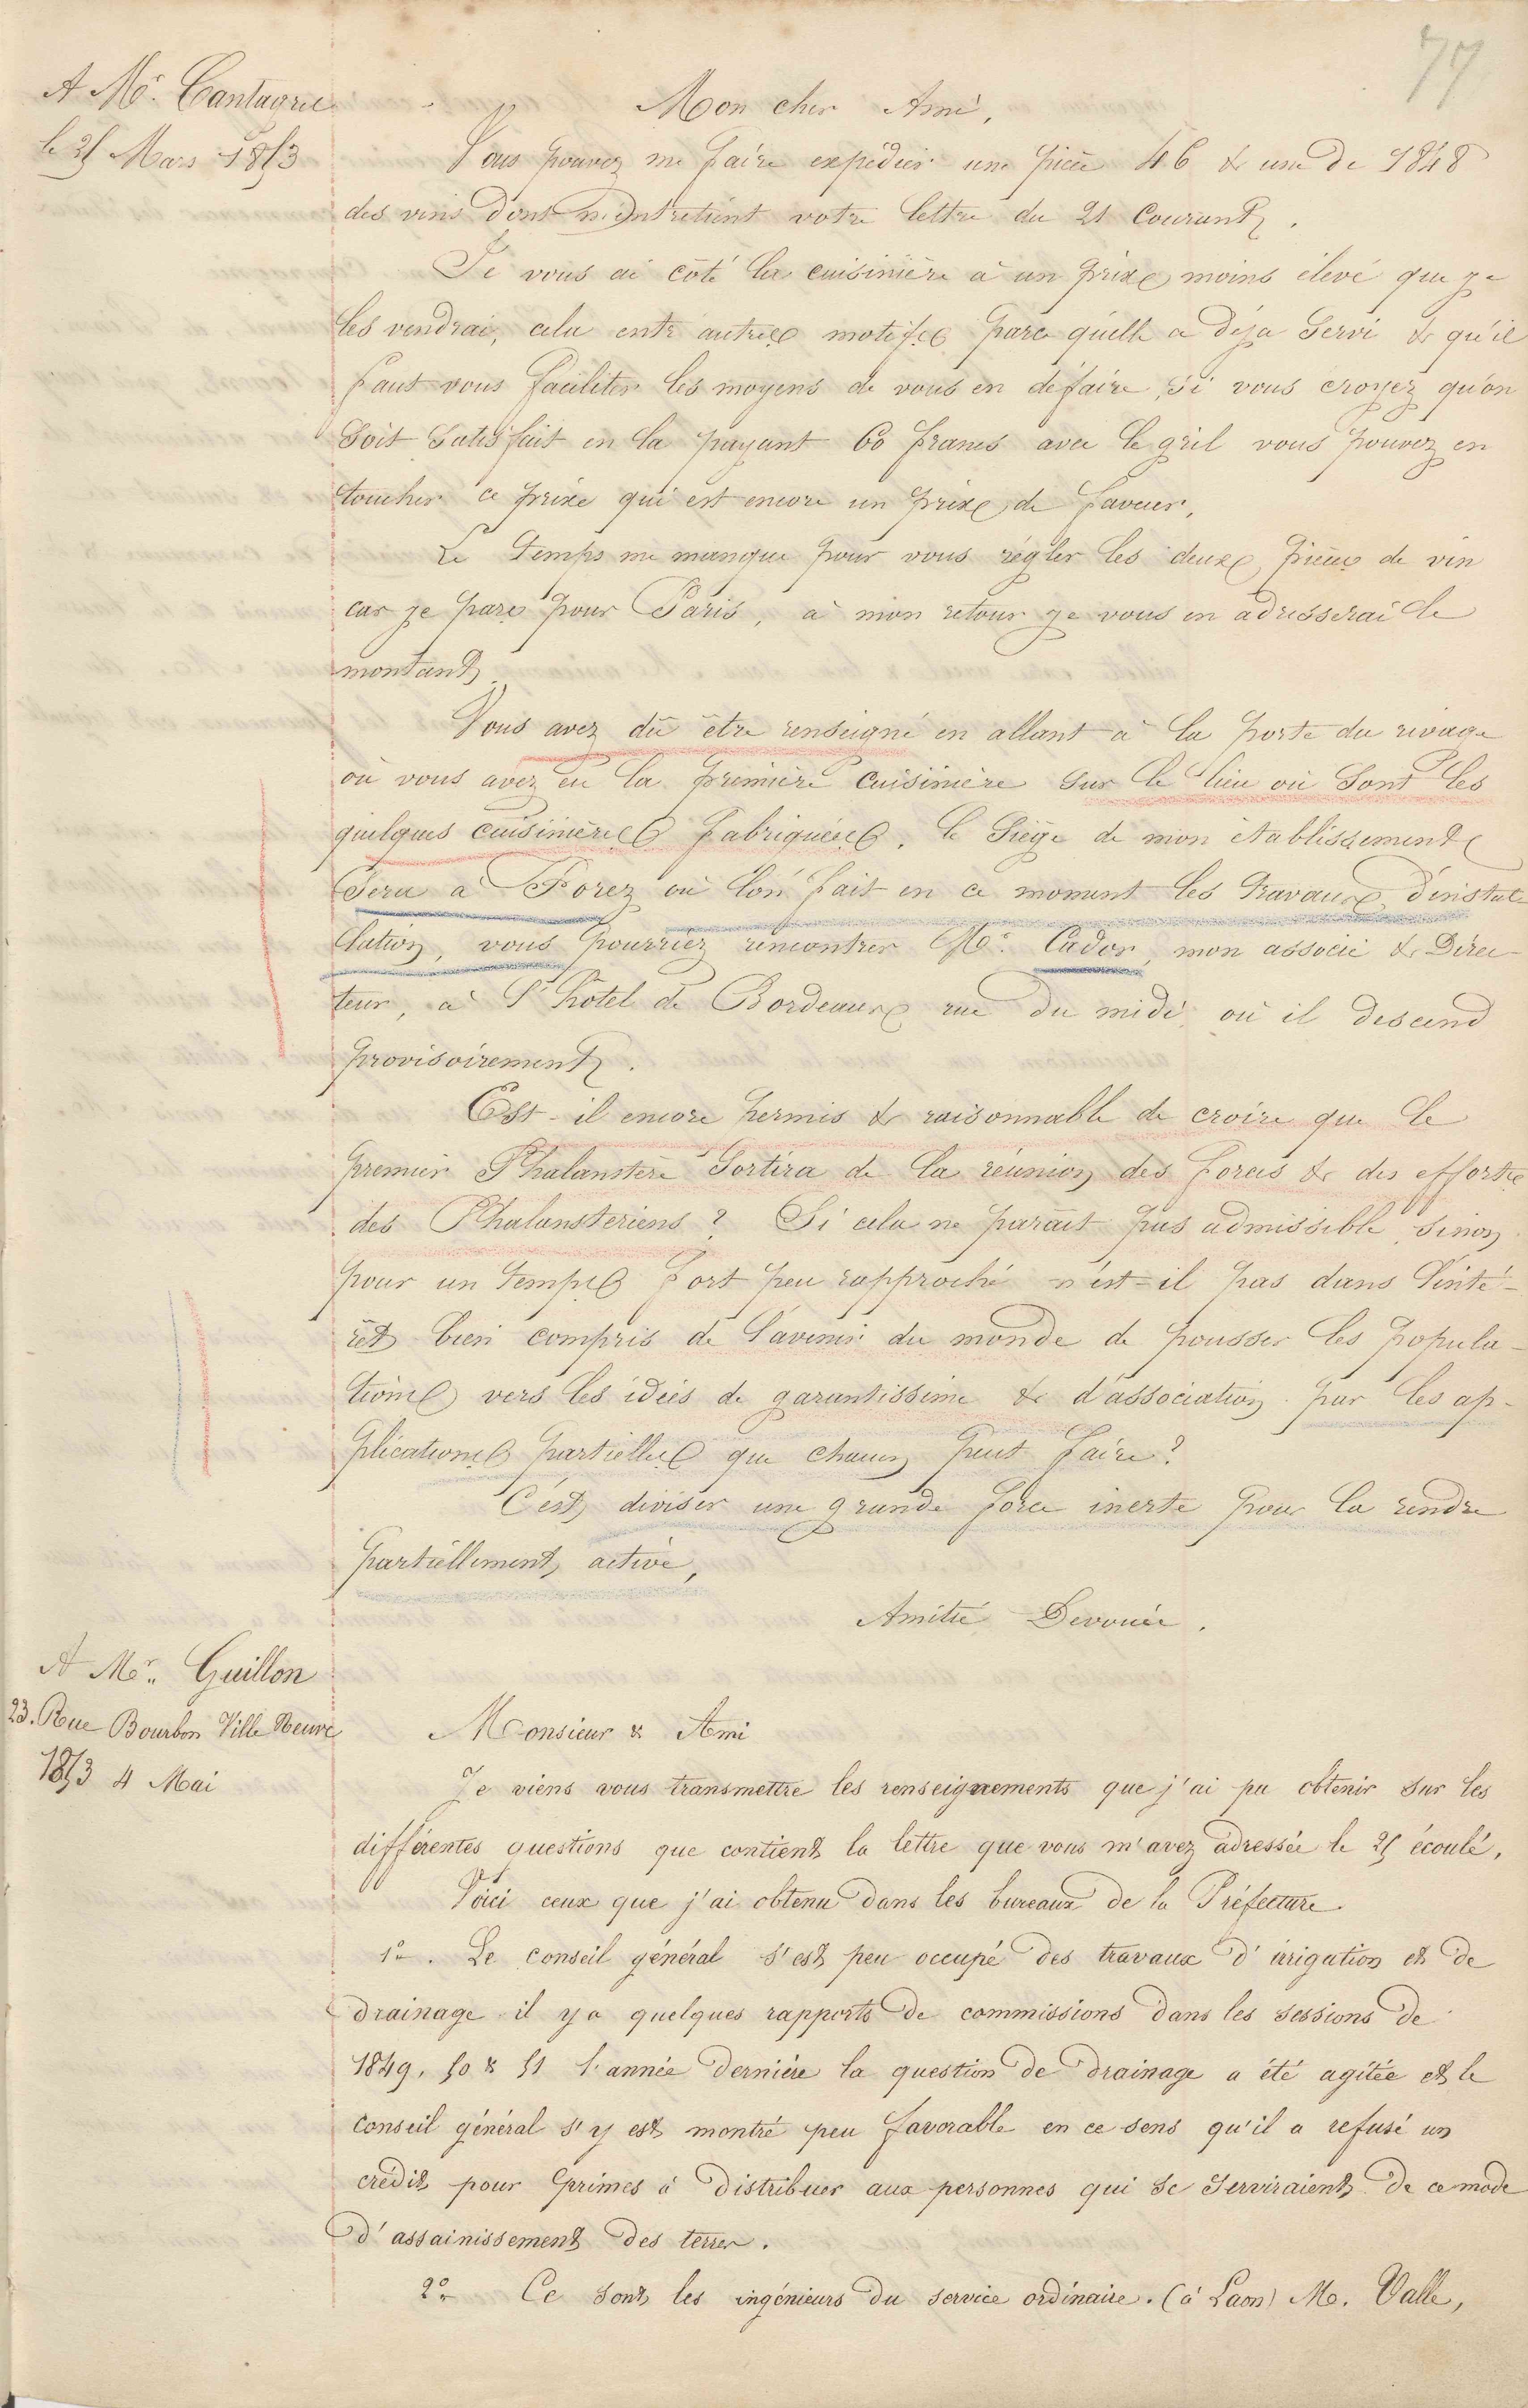 77
A Mr. Cantagrel
le 25 Mars 1853
Mon cher Ami,
Vous pouvez me faire expédier une pièce 46 & une de 1848
des vins dont m'entretient votre lettre du 21 Courant.
Je vous ai côté la cuisinière à un prix moins élevé que je
les vendrai, cela entr autres motifs parce qu'elle a déja servi & qu'il
faut vous faciliter les moyens de vous en défaire, si vous croyez qu'on
soit satisfait en la payant 60 francs avec le gril vous pouvez en
toucher ce prix qui est encore un prix de faveur.
Le temps me manque pour vous régler les deux pièces de vin
car je pars pour Paris, à mon retour je vous en adresserai le
montant.
Vous avez dû être renseigné en allant à la porte du rivage
où vous avez eu la première cuisinière sur le lieu où sont les
quelques cuisinières fabriquées, le Siège de mon établissement
sera à Forez où l'on fait en ce moment les travaux d'instal-
lation, vous pourriez rencontrer Mr. Cador, mon associé & Direc-
teur, à l'hôtel de Bordeaux rue du midi où il descend
provisoirement.
Est-il encore permis & raisonnable de croire que le
premier Phalanstère sortira de la réunion des forces & des efforts
des Phalansteriens ? Si cela ne parait pas admissible sinon
pour un temps fort peu rapproché n'est-il pas dans l'inté-
rêt bien compris de l'avenir du monde de pousser les popula-
tions vers les idées de garantissime & d'association par les ap-
plications partielles que chacun peut faire ?
C'est diviser une grande force inerte pour la rendre
partiellement active,
Amitié Devouée.
A Mr. Guillon
23. Rue Bourbon Ville Neuve
1853 4 Mai
Monsieur & Ami
Je viens vous transmettre les renseignements que j'ai pu obtenir sur les
différentes questions que contient la lettre que vous m'avez adressée le 25 écoulé.
Voici ceux que j'ai obtenu dans les bureaux de la Préfecture.
1°. Le conseil général s'est peu occupé des travaux d'irrigation et de
drainage il y a quelques rapports de commissions dans les sessions de
1849, 50 & 51 l'année dernière la question de drainage a été agitée et le
conseil général s'y est montré peu favorable en ce sens qu'il a refusé un
crédit pour primes à distribuer aux personnes qui se serviraient de ce mode
d'assainissement des terres.
2° Ce sont les ingénieurs du service ordinaire. (à Laon) M. Valle,